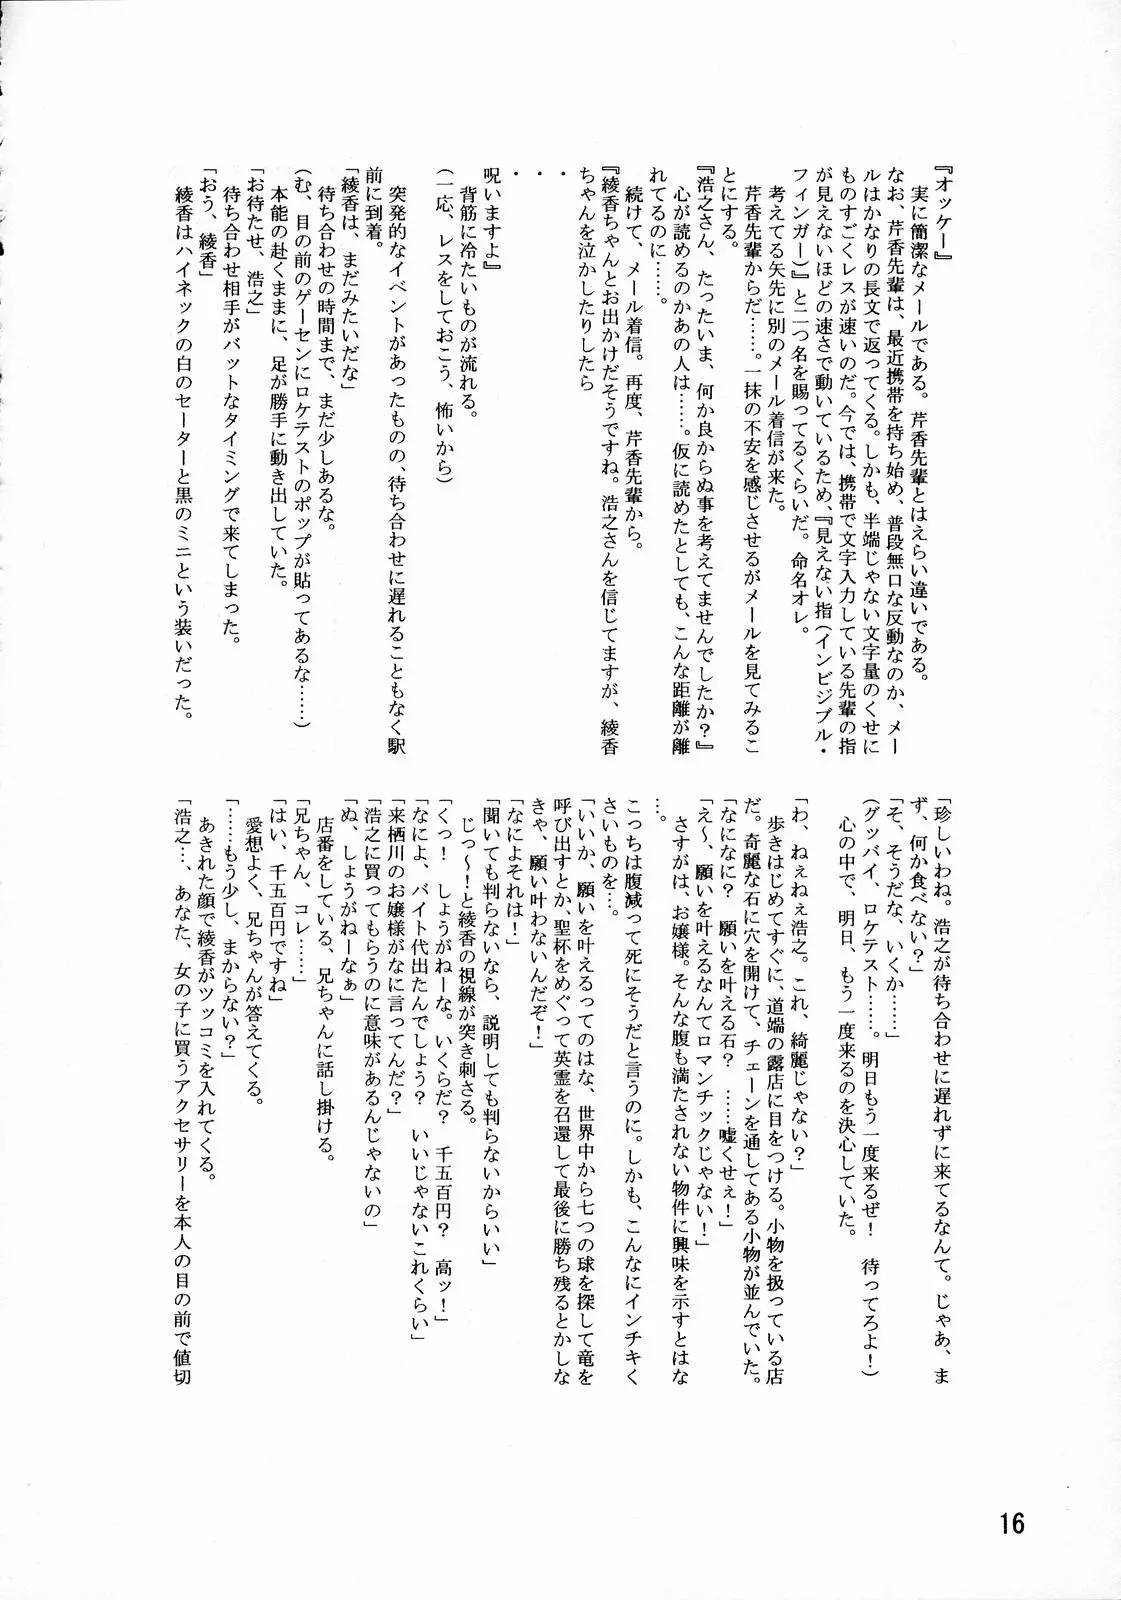 『オッケー』
　実に簡潔なメールである。芹香先輩とはえらい違いである。
なお、芹香先輩は、最近携帯を持ち始め、普段無口な反動なのか、メー
ルはかなりの長文で返ってくる。しかも、半端じゃない文字量のくせに
ものすごくレスが速いのだ。今では、携帯で文字入力している先輩の指
が見えないほどの速さで動いているため、『見えない指（インビジブル・
フィンガー）』と二つ名を賜ってるくらいだ。命名オレ。
　考えてる矢先に別のメール着信が来た。
　芹香先輩からだ……。一抹の不安を感じさせるがメールを見てみるこ
とにする。
『浩之さん、たったいま、何か良からぬ事を考えてませんでしたか？』
　心が読めるのかあの人は……。仮に読めたとしても、こんな距離が離
れてるのに……。
　続けて、メール着信。再度、芹香先輩から。
『綾香ちゃんとお出かけだそうですね。浩之さんを信じてますが、綾香
ちゃんを泣かしたりしたら
・
・
・
呪いますよ』
　背筋に冷たいものが流れる。
（一応、レスをしておこう、怖いから）

　突発的なイベントがあったものの、待ち合わせに遅れることもなく駅
前に到着。
「綾香は、まだみたいだな」
　待ち合わせの時間まで、まだ少しあるな。
（む、目の前のゲーセンにロケテストのポップが貼ってあるな……）
　本能の赴くままに、足が勝手に動き出していた。
「お待たせ、浩之」
　待ち合わせ相手がバットなタイミングで来てしまった。
「おう、綾香」
　綾香はハイネックの白のセーターと黒のミニという装いだった。
「珍しいわね。浩之が待ち合わせに遅れずに来てるなんて。じゃあ、ま
ず、何か食べない？」
「そ、そうだな、いくか……」
（グッバイ、ロケテスト……。明日もう一度来るぜ！　待ってろよ！）
　心の中で、明日、もう一度来るのを決心していた。

「わ、ねぇねぇ浩之。これ、綺麗じゃない？」
　歩きはじめてすぐに、道端の露店に目をつける。小物を扱っている店
だ。奇麗な石に穴を開けて、チェーンを通してある小物が並んでいた。
「なになに？　願いを叶える石？　……嘘くせぇ！」
「え～、願いを叶えるなんてロマンチックじゃない！」
　さすがは、お嬢様。そんな腹も満たされない物件に興味を示すとはな
…。
こっちは腹減って死にそうだと言うのに。しかも、こんなにインチキく
さいものを…。
「いいか、願いを叶えるってのはな、世界中から七つの球を探して竜を
呼び出すとか、聖杯をめぐって英霊を召還して最後に勝ち残るとかしな
きゃ、願い叶わないんだぞ！」
「なによそれは！」
「聞いても判らないなら、説明しても判らないからいい」
　じっ～！と綾香の視線が突き刺さる。
「くっ！　しょうがねーな。いくらだ？　千五百円？　高ッ！」
「なによ、バイト代出たんでしょう？　いいじゃないこれくらい」
「来栖川のお嬢様がなに言ってんだ？」
「浩之に買ってもらうのに意味があるんじゃないの」
「ぬ、しょうがねーなぁ」
　店番をしている、兄ちゃんに話し掛ける。
「兄ちゃん、コレ……」
「はい、千五百円ですね」
　愛想よく、兄ちゃんが答えてくる。
「……もう少し、まからない？」
　あきれた顔で綾香がツッコミを入れてくる。
「浩之…、あなた、女の子に買うアクセサリーを本人の目の前で値切
16